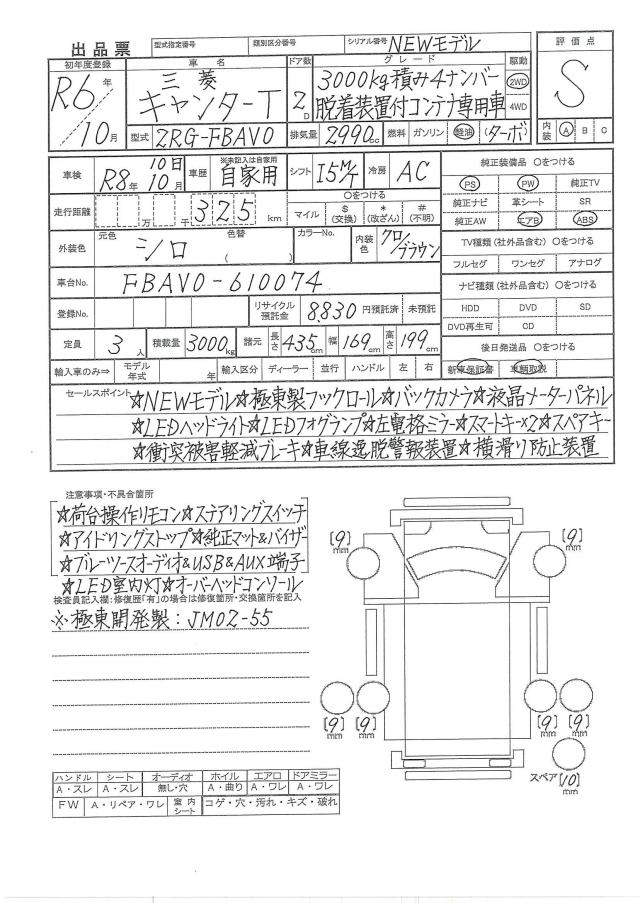 出品票
型式指定番号 類別区分番号 シリアル番号 NEWモデル
初年度登録 車名 ドア数 グレード 駆動 評価点
R6年 三菱 2D 3000kg積み4ナンバー 2WD S
10月 キャンターT 脱着装置付コンテナ専用車 4WD
型式 2RG-FBAV0 排気量 2990cc 燃料 ガソリン 軽油 (ターボ) 内装 A B C
車検 R8年 10日 10月 車歴 ※未記入は自家用 自家用 シフト I5M/T 冷房 AC 純正装備品 ○をつける
PS PW 純正TV
走行距離 十万千 325 km ○をつける マイル $(交換) *(改ざん) #(不明) 純正ナビ 革シート SR
純正AW エアB ABS
外装色 元色 シロ 色替 ( ) カラーNo. 内装色 クロ/ブラウン TV種類(社外品含む) ○をつける
フルセグ ワンセグ アナログ
車台No. FBAV0-610074 ナビ種類(社外品含む) ○をつける
登録No. リサイクル預託金 8,830 円預託済 未預託 HDD DVD SD
DVD再生可 CD
定員 3人 積載量 3000kg 諸元 長さ 435cm 幅 169cm 高さ 199cm 後日発送品 ○をつける
輸入車のみ⇒ モデル年式 年 輸入区分 ディーラー 並行 ハンドル 左 右 新車保証書 車輌取説
セールスポイント
☆NEWモデル☆極東製フックロール☆バックカメラ☆液晶メーターパネル
☆LEDヘッドライト☆LEDフォグランプ☆左電格ミラー☆スマートキー×2☆スペアキー
☆衝突被害軽減ブレーキ☆車線逸脱警報装置☆横滑り防止装置
注意事項・不具合箇所
☆荷台操作リモコン☆ステアリングスイッチ
☆アイドリングストップ☆純正マット&バイザー
☆ブルーツースオーディオ&USB&AUX端子
☆LED室内灯☆オーバーヘッドコンソール
検査員記入欄:修復歴「有」の場合は修復箇所・交換箇所を記入
※極東開発製:JM02-55
[9]mm [9]mm
[9]mm [9]mm [9]mm [9]mm
スペア [10]mm
ハンドル シート オーディオ ホイル エアロ ドアミラー
A・スレ A・スレ 無し・穴 A・曲り A・ワレ A・ワレ
FW A・リペア・ワレ 室内シート コゲ・穴・汚れ・キズ・破れ